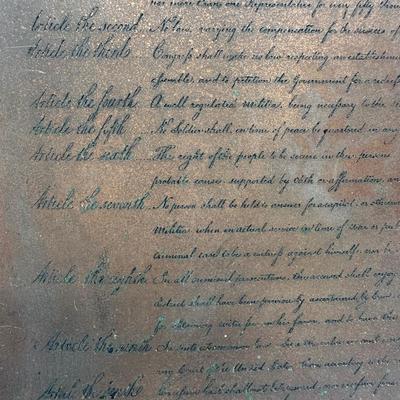 more than one Representative for every fifty thous
Article the second No law, varying the compensation for the services of
Article the third Congress shall make no law respecting an establishmen
assemble, and to petition the Government for a redress
Article the fourth A well regulated militia, being necessary to the
Article the fifth No Soldier shall, in time of peace be quartered in any
Article the sixth The right of the people to be secure in their persons
probable cause, supported by Oath or affirmation, an
Article the seventh No person shall be held to answer for a capital, or otherwise
Militia, when in actual service in time of War or pub
criminal case to be a witness against himself, nor be
Article the eighth In all criminal prosecutions, the accused shall enjoy
district shall have been previously ascertained by law
for obtaining witnesses in his favor, and to have the
Article the ninth In suits at common law, where the value in cont
any Court of the United States, than according to the
Article the tenth Excessive bail shall not be required, nor excessive fines